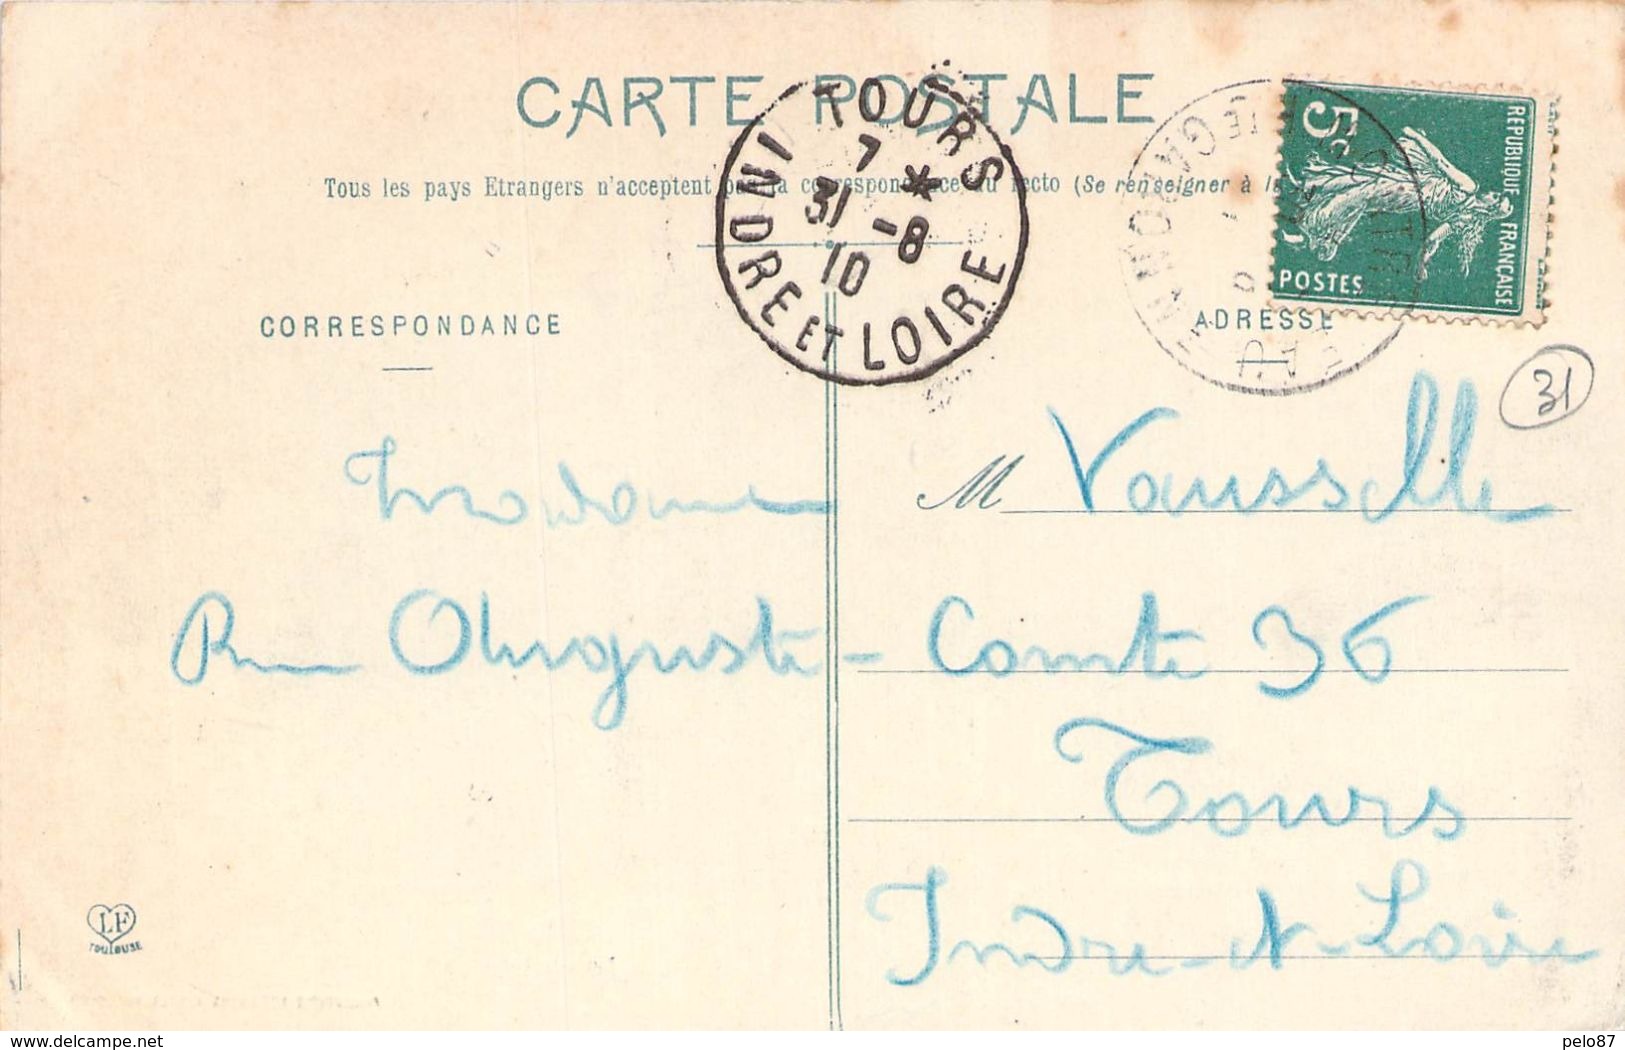 CARTE POSTALE
Tous les pays Etrangers n'acceptent pas la correspondance au recto (Se renseigner à la
TOURS
7 *
31 -8
10
INDRE ET LOIRE
REPUBLIQUE FRANÇAISE
5c
POSTES
Hte GARONNE
CORRESPONDANCE
ADRESSE
31
Madame M Vausselle
Rue Auguste-Comte 36
Tours
Indre-&-Loire
LF
TOULOUSE
delcampe.net
pelo87